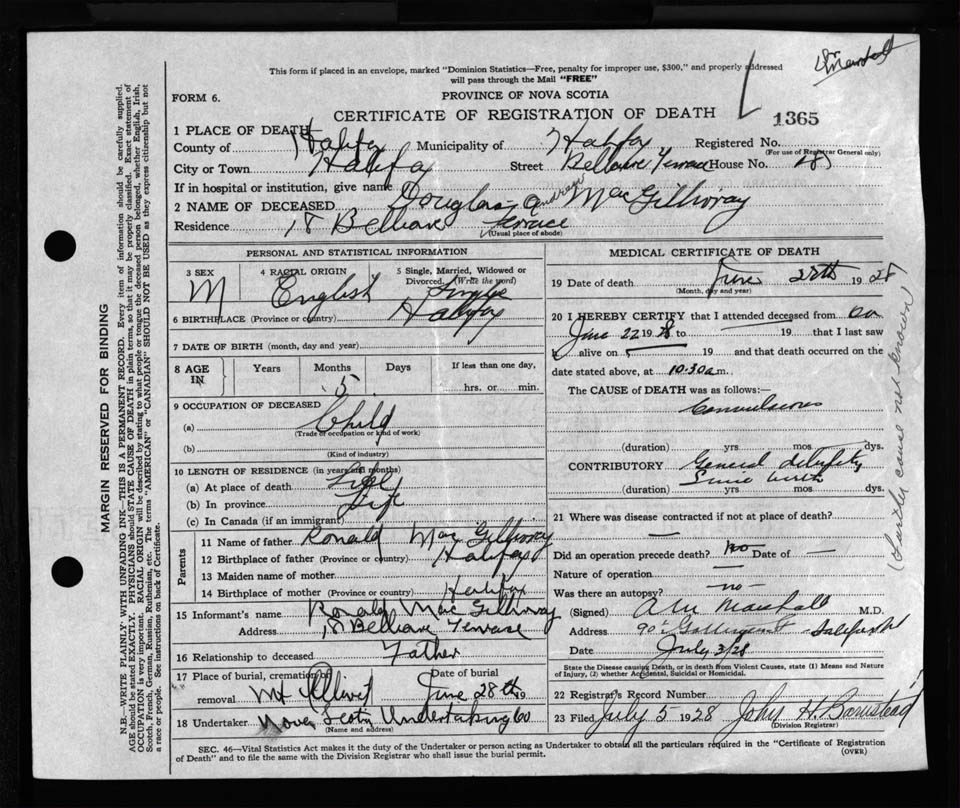 Dr Marshall
This form if placed in an envelope, marked "Dominion Statistics—Free, penalty for improper use, $300," and properly addressed
will pass through the Mail "FREE"
FORM 6.
PROVINCE OF NOVA SCOTIA
CERTIFICATE OF REGISTRATION OF DEATH
1365
1 PLACE OF DEATH
County of Halifax Municipality of Halifax Registered No.
(For use of Registrar General only)
City or Town Halifax Street Belleaire Terrace House No. 18
If in hospital or institution, give name
2 NAME OF DECEASED Douglas Andrew MacGillivray
Residence 18 Belleaire Terrace
(Usual place of abode)
PERSONAL AND STATISTICAL INFORMATION
3 SEX M
4 RACIAL ORIGIN English
5 Single, Married, Widowed or
Divorced. (Write the word) Single
6 BIRTHPLACE (Province or country) Halifax
7 DATE OF BIRTH (month, day and year)
8 AGE IN Years Months Days If less than one day,
5 hrs. or min.
9 OCCUPATION OF DECEASED
(a) Child
(Trade or occupation or kind of work)
(b)
(Kind of industry)
10 LENGTH OF RESIDENCE (in years and months)
(a) At place of death Life
(b) In province Life
(c) In Canada (if an immigrant)
Parents
11 Name of father Ronald MacGillivray
12 Birthplace of father (Province or country) Halifax
13 Maiden name of mother
14 Birthplace of mother (Province or country) Halifax
15 Informant's name Ronald MacGillivray
Address 18 Belleaire Terrace
16 Relationship to deceased Father
17 Place of burial, cremation or
removal Mt Olivet
Date of burial
June 28th 19
18 Undertaker Nova Scotia Undertaking Co
(Name and address)
MEDICAL CERTIFICATE OF DEATH
19 Date of death June 27th 1928
(Month, day and year)
20 I HEREBY CERTIFY that I attended deceased from on
June 22 1928 to 19 that I last saw
alive on 19 and that death occurred on the
date stated above, at 10.30 a.m.
The CAUSE of DEATH was as follows:—
Convulsions
(duration) yrs mos dys.
CONTRIBUTORY General debility
Since birth
(duration) yrs mos dys.
(Further cause not known)
21 Where was disease contracted if not at place of death?
—
Did an operation precede death? No Date of —
Nature of operation —
Was there an autopsy? —no—
(Signed) A M Marshall M.D.
Address Halifax
Date July 3/28
State the Disease causing Death, or in death from Violent Causes, state (1) Means and Nature
of Injury, (2) whether Accidental, Suicidal or Homicidal.
22 Registrar's Record Number
23 Filed July 5 1928 John H. Barnstead
(Division Registrar)
SEC. 46—Vital Statistics Act makes it the duty of the Undertaker or person acting as Undertaker to obtain all the particulars required in the "Certificate of Registration
of Death" and to file the same with the Division Registrar who shall issue the burial permit.
(OVER)
MARGIN RESERVED FOR BINDING
N.B.—WRITE PLAINLY WITH UNFADING INK—THIS IS A PERMANENT RECORD. Every item of information should be carefully supplied.
AGE should be stated EXACTLY. PHYSICIANS should STATE CAUSE OF DEATH in plain terms, so that it may be properly classified. Exact statement of
OCCUPATION is very important. RACIAL ORIGIN will be described by stating to what people or tongue the deceased person belonged, whether English, Irish,
Scotch, French, German, Russian, Ruthenian, etc. The terms "AMERICAN" or "CANADIAN" SHOULD NOT BE USED as they express citizenship but not
a race or people. See instructions on back of Certificate.